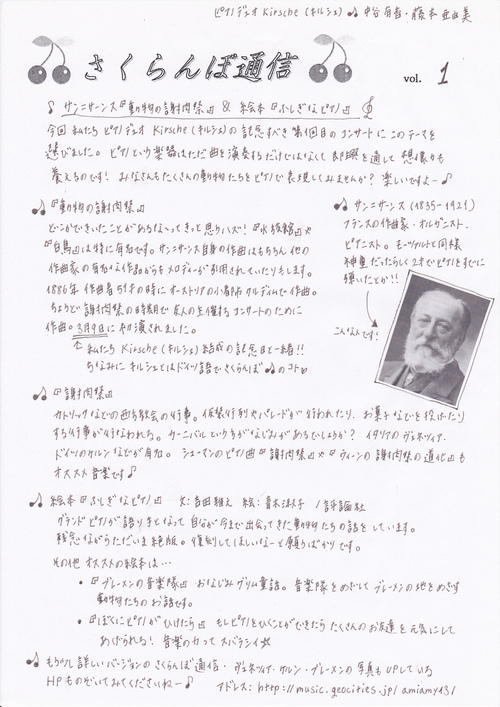 ピアノデュオ Kirsche (キルシェ) ♪ 中谷 有香・藤本 亜由美
さくらんぼ通信
vol. 1
♪ サン=サーンス『動物の謝肉祭』 & 絵本『ふしぎなピアノ』
今回 私たち ピアノデュオ Kirsche (キルシェ) の 記念すべき 第1回目の コンサートに このテーマを
選びました。 ピアノという楽器は ただ曲を演奏するだけではなくて 即興を通して 想像力も
養えるのです! みなさんも たくさんの動物たちを ピアノで 表現してみませんか? 楽しいですよー♪
♪ 『動物の謝肉祭』
どこかできいたことがあるな〜って きっと 思うハズ! 『水族館』や
『白鳥』は 特に有名です。サン=サーンス自身の作曲はもちろん 他の
作曲家の 有名な作品からも メロディーが引用されていたりもします。
1886年 作曲者51才の時に オーストリアの小都市 クルディムで作曲。
ちょうど 謝肉祭の時期で 友人の主催する コンサートのために
作曲。3月9日に 初演されました。
↑ 私たち Kirsche (キルシェ) 結成の記念日と一緒!!
ちなみに キルシェとはドイツ語で さくらんぼ のコト
♪ サン=サーンス (1835-1921)
フランスの作曲家・オルガニスト・
ピアニスト。モーツァルトと同様
神童だったらしく 2才でピアノをすでに
弾いたとか!!
こんな人です!
♪ 『謝肉祭』
カトリックなどの西方教会の行事。仮装行列やパレードが行われたり、お菓子などを投げたり
する行事が行なわれる。カーニバルという方がなじみがあるでしょうか? イタリアの ヴェネツィア、
ドイツのケルンなどが有名。シューマンの ピアノ曲『謝肉祭』や『ウィーンの謝肉祭の道化』も
オススメ音楽です♪
♪ 絵本『ふしぎなピアノ』 文:吉田 絵:青木 /評論社
グランドピアノが語り手となって 自分が今まで出会ってきた動物たちの話をしています。
残念ながら ただいま絶版。復刻してほしいなーと 願うばかりです。
その他 オススメの絵本は…
• 『ブレーメンの音楽隊』 おなじみグリム童話。音楽隊をめざして ブレーメンの地をめざす
動物たちのお話です。
• 『ぼくにピアノがひけたら』 もしピアノをひくことができたら たくさんのお友達を元気にして
あげられる! 音楽の力って スバラシイ☆
♪ もう少し詳しいバージョンの さくらんぼ通信・ヴェネツィア・ケルン・ブレーメンの 写真もUPしている
HPものぞいてみてくださいねー♪ アドレス: http://music.geocities.jp/amiamy131